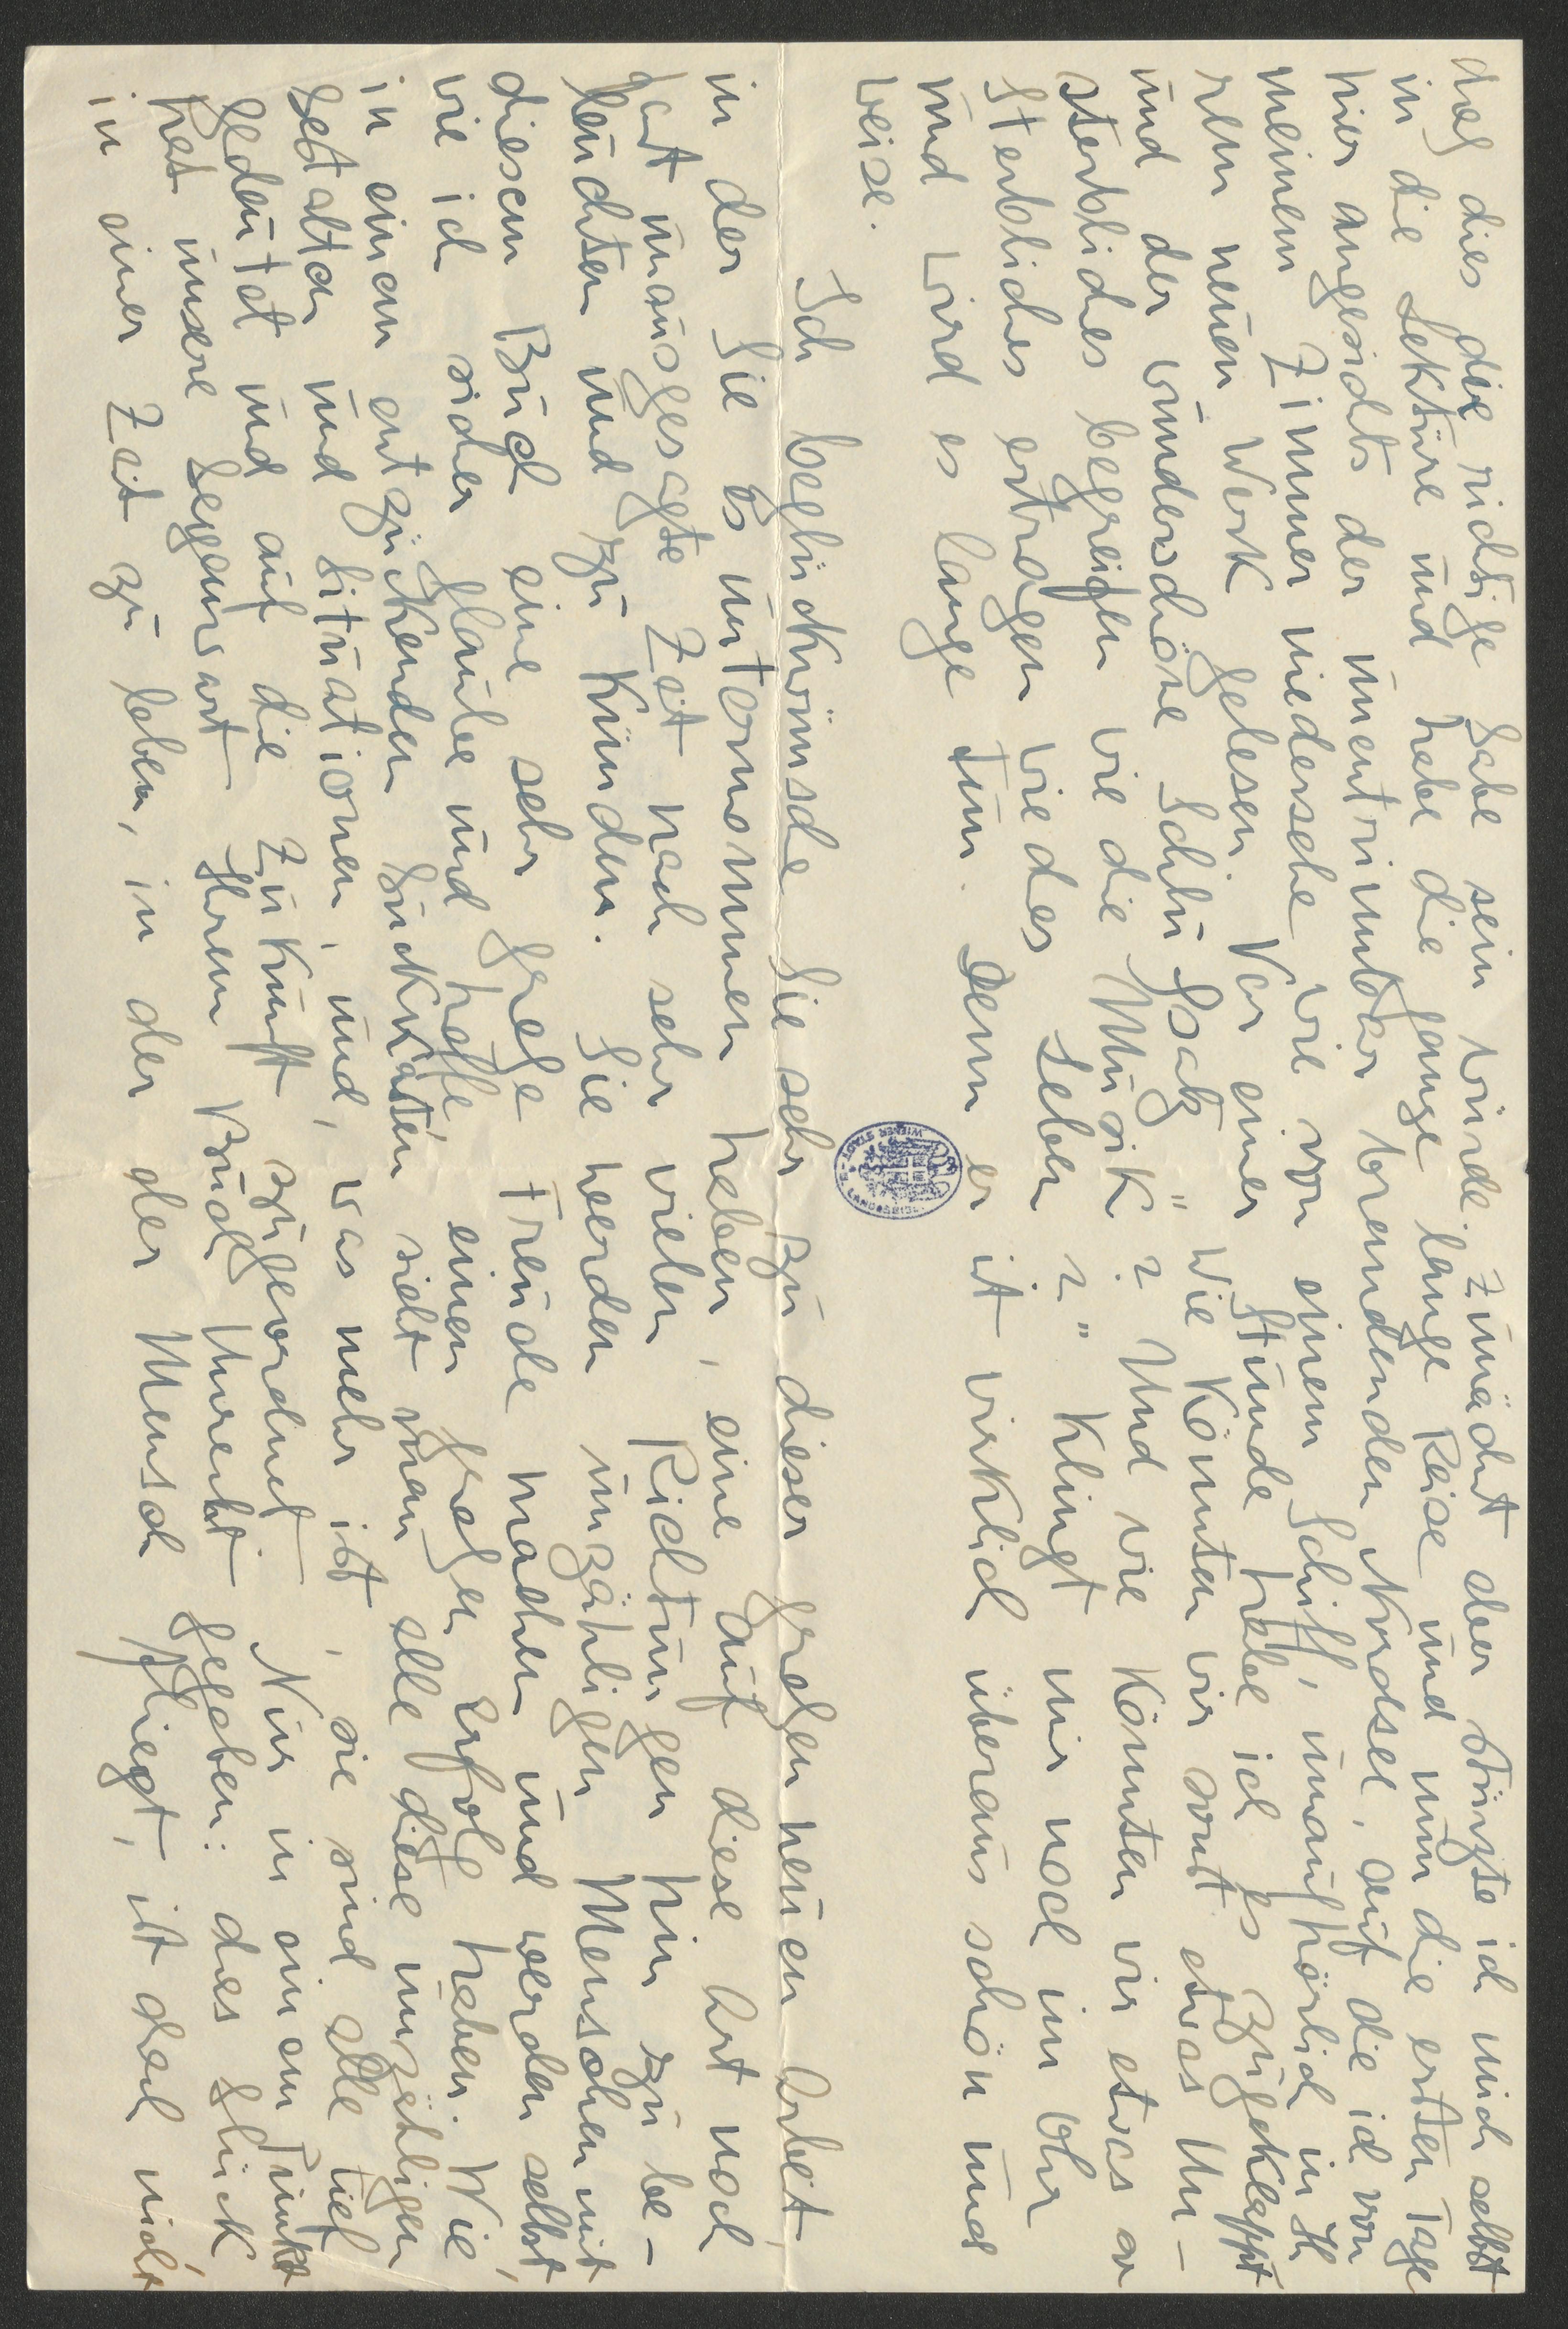 daß dies die richtige Gabe sein würde. Zunächst aber stürzte ich mich selbst
in die Lektüre und habe die ganze lange Reise und nun die ersten Tage
hier angesichts der unentrinnbar brandenden Nordsee, auf die ich von
meinem Zimmer niedersehe wie von einem Schiff, unaufhörlich in Ih
rem neuen Werk gelesen. Vor einer Stunde habe ich es zugeklappt
und der wunderschöne Schlußsatz „Wie könnten wir sonst etwas Un-
sterbliches begreifen wie die Musik? Und wie könnten wir etwas so
Sterbliches ertragen wie das Leben?" klingt mir noch im Ohr
und wird es lange tun. Denn er ist wirklich überaus schön und
weise.
Ich beglückwünsche Sie sehr zu dieser großen neuen Arbeit,
in der Sie es unternommen haben, eine auf diese Art noch
fast unausgesagte Zeit nach sehr vielen Richtungen hin zu be-
leuchten und zu künden. Sie werden unzähligen Menschen mit
diesem Buch eine sehr große Freude machen und werden selbst,
wie ich sicher glaube und hoffe einen großen Erfolg haben. Wie
in einem entzückenden Guckkasten sieht man alle diese unzähligen
Gestalten und Situationen, und, was mehr ist, sie sind alle tief
gedeutet und auf die Zukunft zugeordnet. Nur in einem Punkt
hat unsere Gegenwart Ihrem Buch Unrecht gegeben: das Glück,
in einer Zeit zu leben, in der der Mensch fliegt, ist doch nicht
WIENER STADT- U. LANDESBIBL.